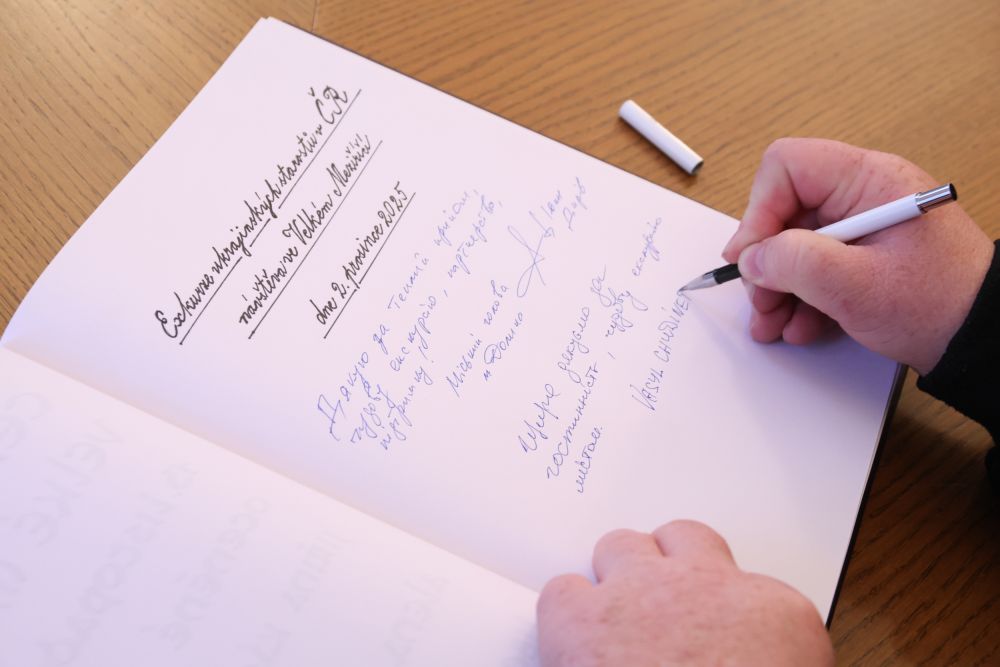 Exkurze ukrajinských starostů v ČR
návštěva ve Velkém Meziříčí
dne 2. prosince 2025
Дякую за теплий прийом,
чудову екскурсію, партнерство,
підтримку!
Міський голова
м Долина
Іван Дирів
Щиро дякуємо за
гостинність, чудову екскурсію
містом.
VASYL